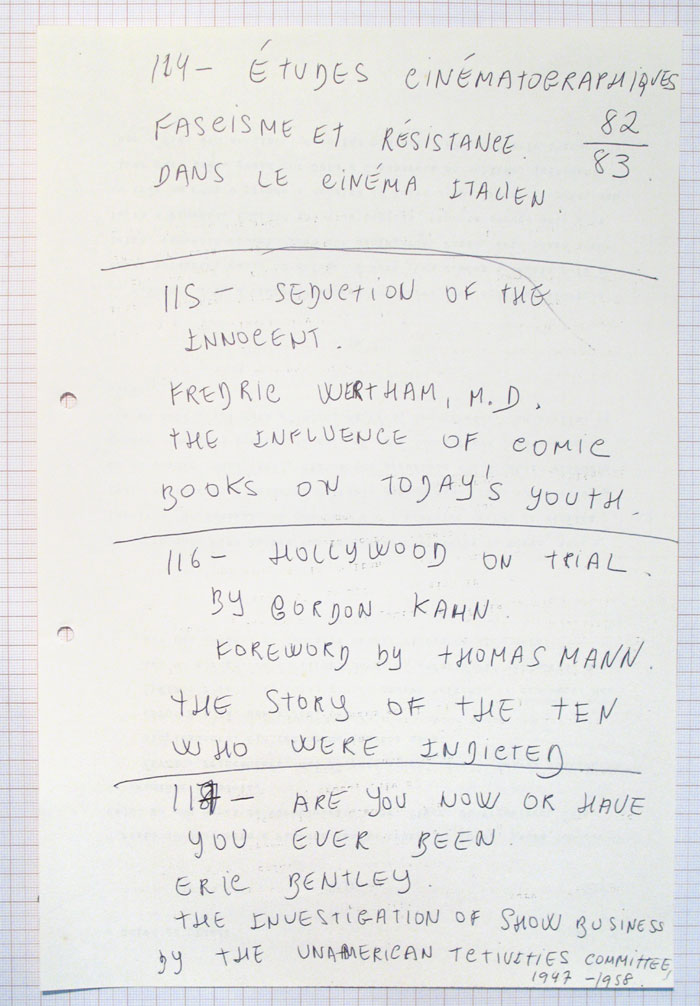 114 - ÉTUDES CINÉMATOGRAPHIQUES
FASCISME ET RÉSISTANCE. 82/83
DANS LE CINÉMA ITALIEN.
115 - SEDUCTION OF THE
INNOCENT.
FREDRIC WERTHAM, M.D.
THE INFLUENCE OF COMIC
BOOKS ON TODAY'S YOUTH.
116 - HOLLYWOOD ON TRIAL.
BY GORDON KAHN.
FOREWORD by THOMAS MANN.
THE STORY OF THE TEN
WHO WERE INDICTED
117 - ARE YOU NOW OR HAVE
YOU EVER BEEN.
ERIC BENTLEY.
THE INVESTIGATION OF SHOW BUSINESS
by THE UNAMERICAN TCTIVITIES COMMITTEE,
1947 - 1958.